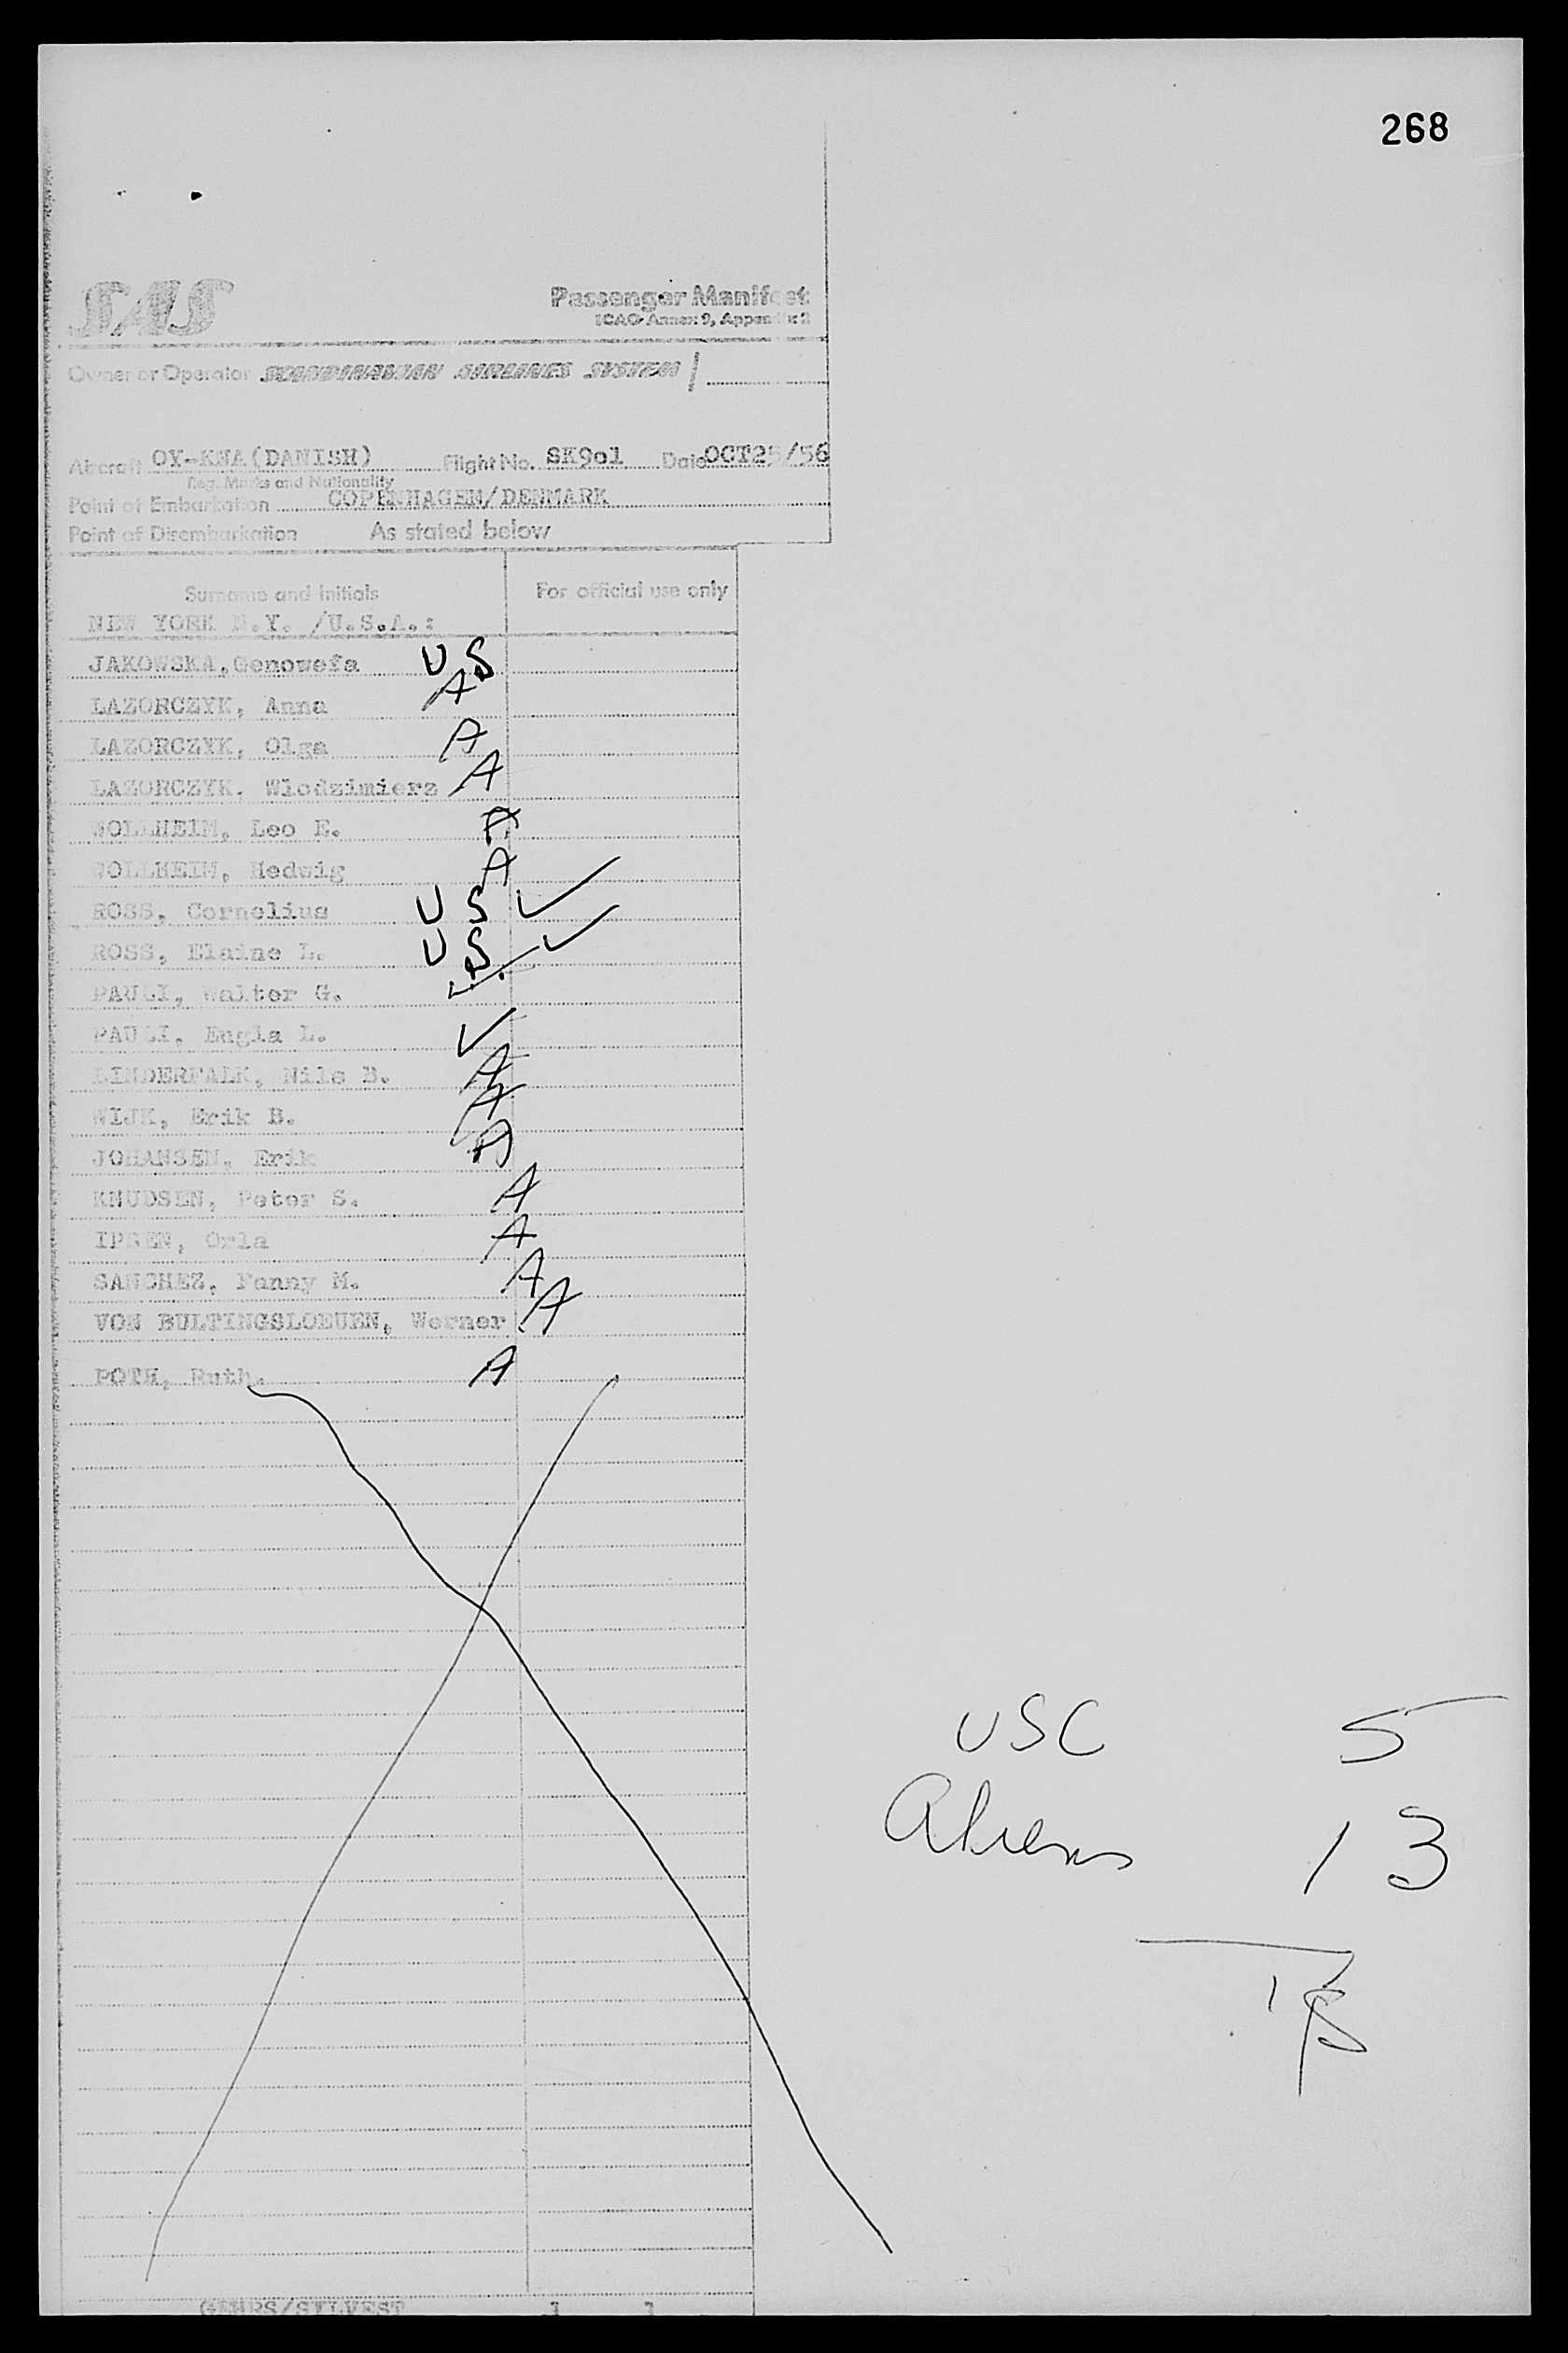 268
SAS
Passenger Manifest
ICAO Annex 9, Appendix 2
Owner or Operator SCANDINAVIAN AIRLINES SYSTEM
Aircraft OY-KNA(DANISH) Flight No. SK901 Date OCT25/56
Reg. Marks and Nationality
Point of Embarkation COPENHAGEN/DENMARK
Point of Disembarkation As stated below
Surname and initials For official use only
NEW YORK N.Y. /U.S.A.:
JAKOWSKA,Genowefa US
LAZORCZYK, Anna A
LAZORCZYK, Olga A
LAZORCZYK. Wlodzimierz A
WOLLHEIM, Leo E. A
WOLLHEIM, Hedwig A
ROSS, Cornelius US ✓
ROSS, Elaine L. US ✓
PAULI, Walter G. ✓
PAULI, Engla L. ✓
LINDERFALK, Nils B. A
WIJK, Erik B. A
JOHANSEN, Erik A
KNUDSEN, Peter S. A
IPSEN, Orla A
SANCHEZ, Fanny M. A
VON BULTINGSLOEUEN, Werner A
POTH, Ruth. A
USC 5
Aliens 13
18